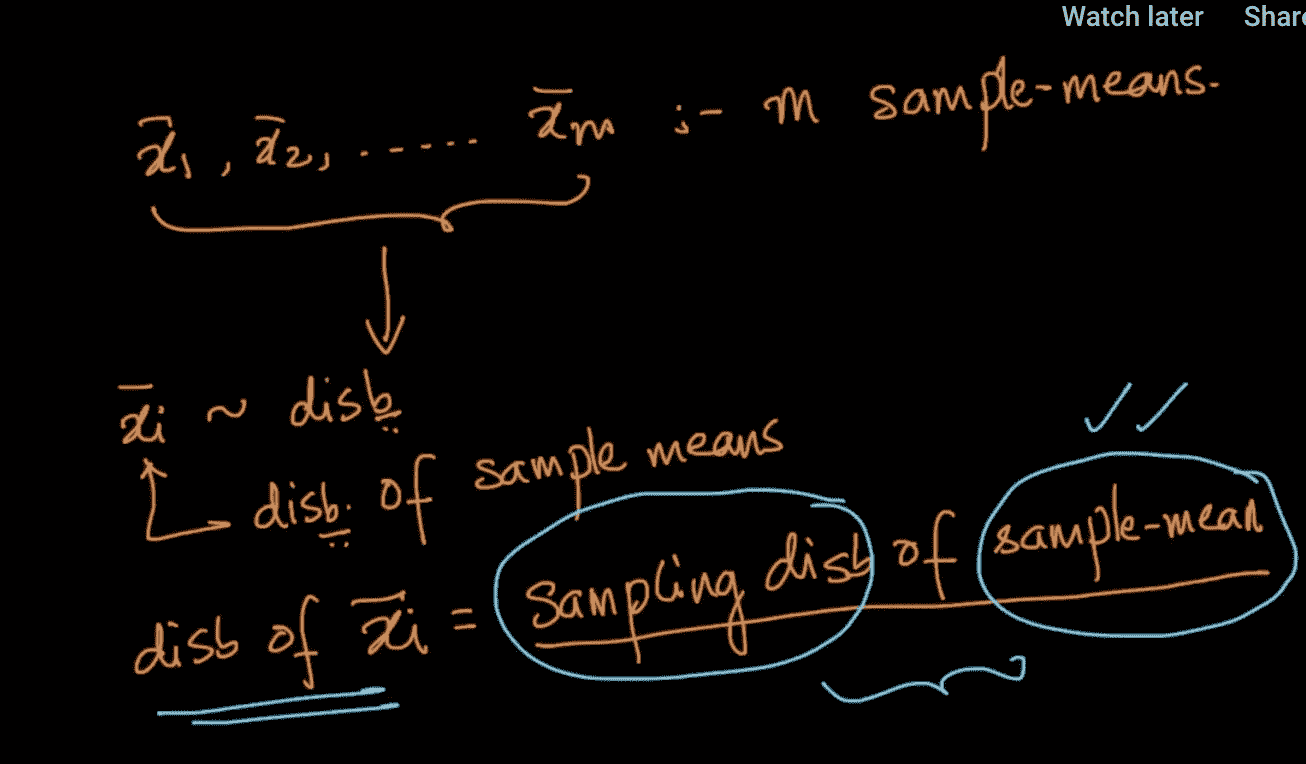 Watch later Share
x̄₁, x̄₂, ........ x̄ₘ :- m sample-means.
x̄ᵢ ~ disb
disb. of sample means
disb of x̄ᵢ = sampling disb of sample-mean